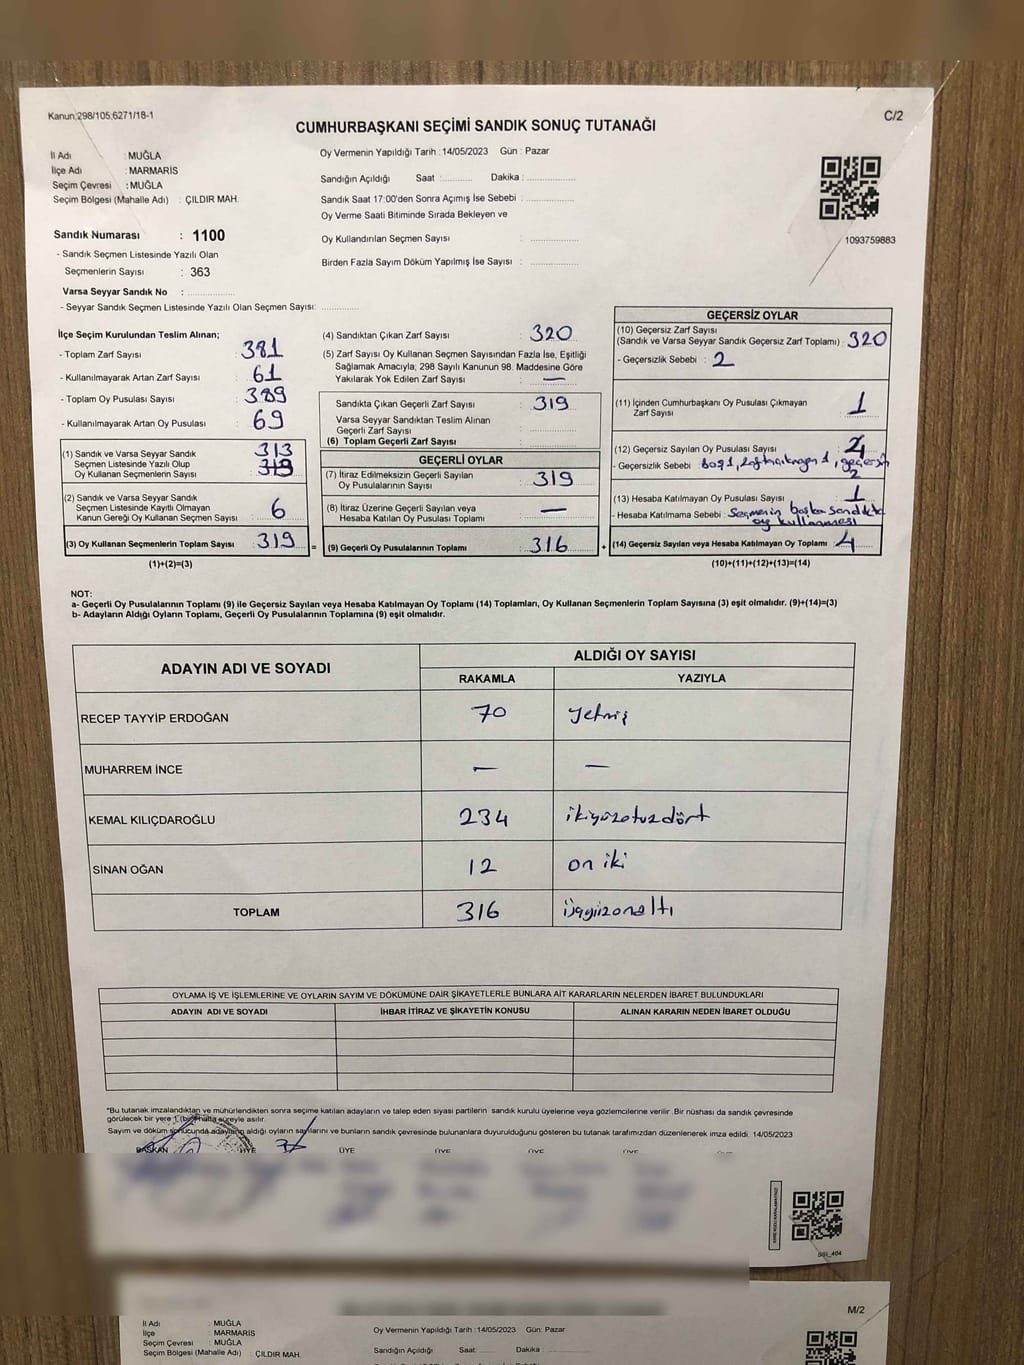 Kanun:298/105;6271/18-1
C/2
CUMHURBAŞKANI SEÇİMİ SANDIK SONUÇ TUTANAĞI
İl Adı : MUĞLA
İlçe Adı : MARMARİS
Seçim Çevresi : MUĞLA
Seçim Bölgesi (Mahalle Adı) : ÇILDIR MAH.
Sandık Numarası : 1100
- Sandık Seçmen Listesinde Yazılı Olan
Seçmenlerin Sayısı : 363
Varsa Seyyar Sandık No :
- Seyyar Sandık Seçmen Listesinde Yazılı Olan Seçmen Sayısı:
Oy Vermenin Yapıldığı Tarih : 14/05/2023 Gün : Pazar
Sandığın Açıldığı Saat : Dakika :
Sandık Saat 17:00'den Sonra Açımış İse Sebebi :
Oy Verme Saati Bitiminde Sırada Bekleyen ve
Oy Kullandırılan Seçmen Sayısı :
Birden Fazla Sayım Döküm Yapılmış İse Sayısı :
1093759883
İlçe Seçim Kurulundan Teslim Alınan;
- Toplam Zarf Sayısı : 381
- Kullanılmayarak Artan Zarf Sayısı : 61
- Toplam Oy Pusulası Sayısı : 389
- Kullanılmayarak Artan Oy Pusulası : 69
(1) Sandık ve Varsa Seyyar Sandık
Seçmen Listesinde Yazılı Olup
Oy Kullanan Seçmenlerin Sayısı : 313
(2) Sandık ve Varsa Seyyar Sandık
Seçmen Listesinde Kayıtlı Olmayan
Kanun Gereği Oy Kullanan Seçmen Sayısı : 6
(3) Oy Kullanan Seçmenlerin Toplam Sayısı : 319
(1)+(2)=(3)
(4) Sandıktan Çıkan Zarf Sayısı : 320
(5) Zarf Sayısı Oy Kullanan Seçmen Sayısından Fazla İse, Eşitliği
Sağlamak Amacıyla; 298 Sayılı Kanunun 98. Maddesine Göre
Yakılarak Yok Edilen Zarf Sayısı : —
Sandıkta Çıkan Geçerli Zarf Sayısı : 319
Varsa Seyyar Sandıktan Teslim Alınan
Geçerli Zarf Sayısı :
(6) Toplam Geçerli Zarf Sayısı :
GEÇERLİ OYLAR
(7) İtiraz Edilmeksizin Geçerli Sayılan
Oy Pusulalarının Sayısı : 319
(8) İtiraz Üzerine Geçerli Sayılan veya
Hesaba Katılan Oy Pusulası Toplamı : —
= (9) Geçerli Oy Pusulalarının Toplamı : 316
GEÇERSİZ OYLAR
(10) Geçersiz Zarf Sayısı
(Sandık ve Varsa Seyyar Sandık Geçersiz Zarf Toplamı) : 320
- Geçersizlik Sebebi : 2
(11) İçinden Cumhurbaşkanı Oy Pusulası Çıkmayan
Zarf Sayısı : 1
(12) Geçersiz Sayılan Oy Pusulası Sayısı :
- Geçersizlik Sebebi : boş 1, geçersiz
2
(13) Hesaba Katılmayan Oy Pusulası Sayısı : 1
- Hesaba Katılmama Sebebi : Seçmenin başka sandıkta
oy kullanması
+ (14) Geçersiz Sayılan veya Hesaba Katılmayan Oy Toplamı : 4
(10)+(11)+(12)+(13)=(14)
NOT:
a- Geçerli Oy Pusulalarının Toplamı (9) ile Geçersiz Sayılan veya Hesaba Katılmayan Oy Toplamı (14) Toplamları, Oy Kullanan Seçmenlerin Toplam Sayısına (3) eşit olmalıdır. (9)+(14)=(3)
b- Adayların Aldığı Oyların Toplamı, Geçerli Oy Pusulalarının Toplamına (9) eşit olmalıdır.
ADAYIN ADI VE SOYADI
ALDIĞI OY SAYISI
RAKAMLA YAZIYLA
RECEP TAYYİP ERDOĞAN 70 yetmiş
MUHARREM İNCE — —
KEMAL KILIÇDAROĞLU 234 ikiyüzotuzdört
SİNAN OĞAN 12 on iki
TOPLAM 316 üçyüzonaltı
OYLAMA İŞ VE İŞLEMLERİNE VE OYLARIN SAYIM VE DÖKÜMÜNE DAİR ŞİKAYETLERLE BUNLARA AİT KARARLARIN NELERDEN İBARET BULUNDUKLARI
ADAYIN ADI VE SOYADI İHBAR İTİRAZ VE ŞİKAYETİN KONUSU ALINAN KARARIN NEDEN İBARET OLDUĞU
"Bu tutanak imzalandıktan ve mühürlendikten sonra seçime katılan adayların ve talep eden siyasi partilerin sandık kurulu üyelerine veya gözlemcilerine verilir. Bir nüshası da sandık çevresinde
görülecek bir yere 1 (bir) hafta süreyle asılır.
Sayım ve döküm sonucunda adayların aldığı oyların sayılarını ve bunların sandık çevresinde bulunanlara duyurulduğunu gösteren bu tutanak tarafımızdan düzenlenerek imza edildi. 14/05/2023
BAŞKAN ÜYE ÜYE ÜYE ÜYE ÜYE
SSI_404
M/2
İl Adı : MUĞLA
İlçe : MARMARİS
Seçim Çevresi : MUĞLA
Seçim Bölgesi (Mahalle Adı) : ÇILDIR MAH.
Oy Vermenin Yapıldığı Tarih : 14/05/2023 Gün: Pazar
Sandığın Açıldığı Saat : Dakika :